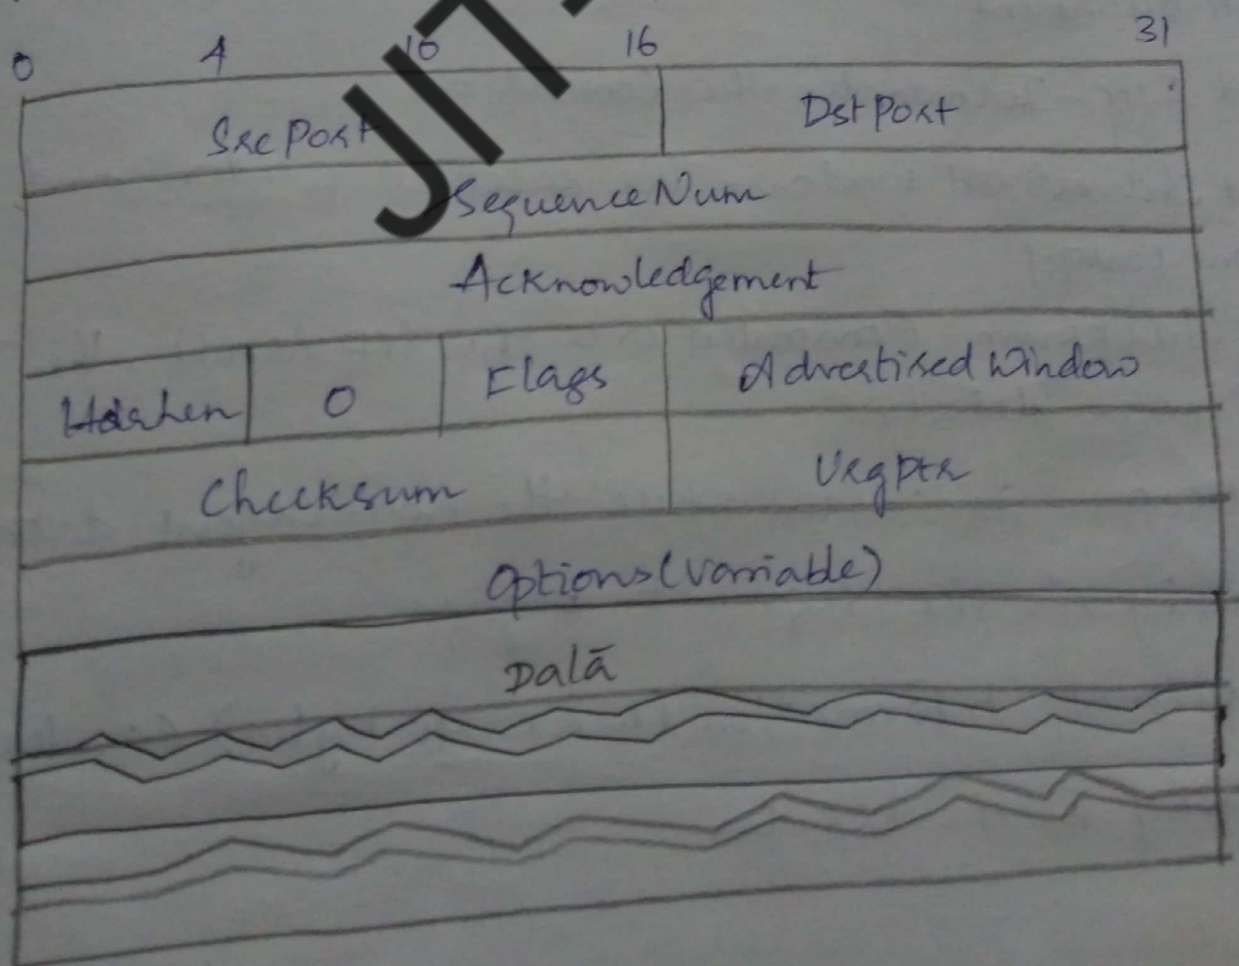 0 4 10 16 31
SrcPort DstPort
SequenceNum
Acknowledgement
HdrLen 0 Flags AdvertisedWindow
Checksum UrgPtr
Options(variable)
Data
JIT